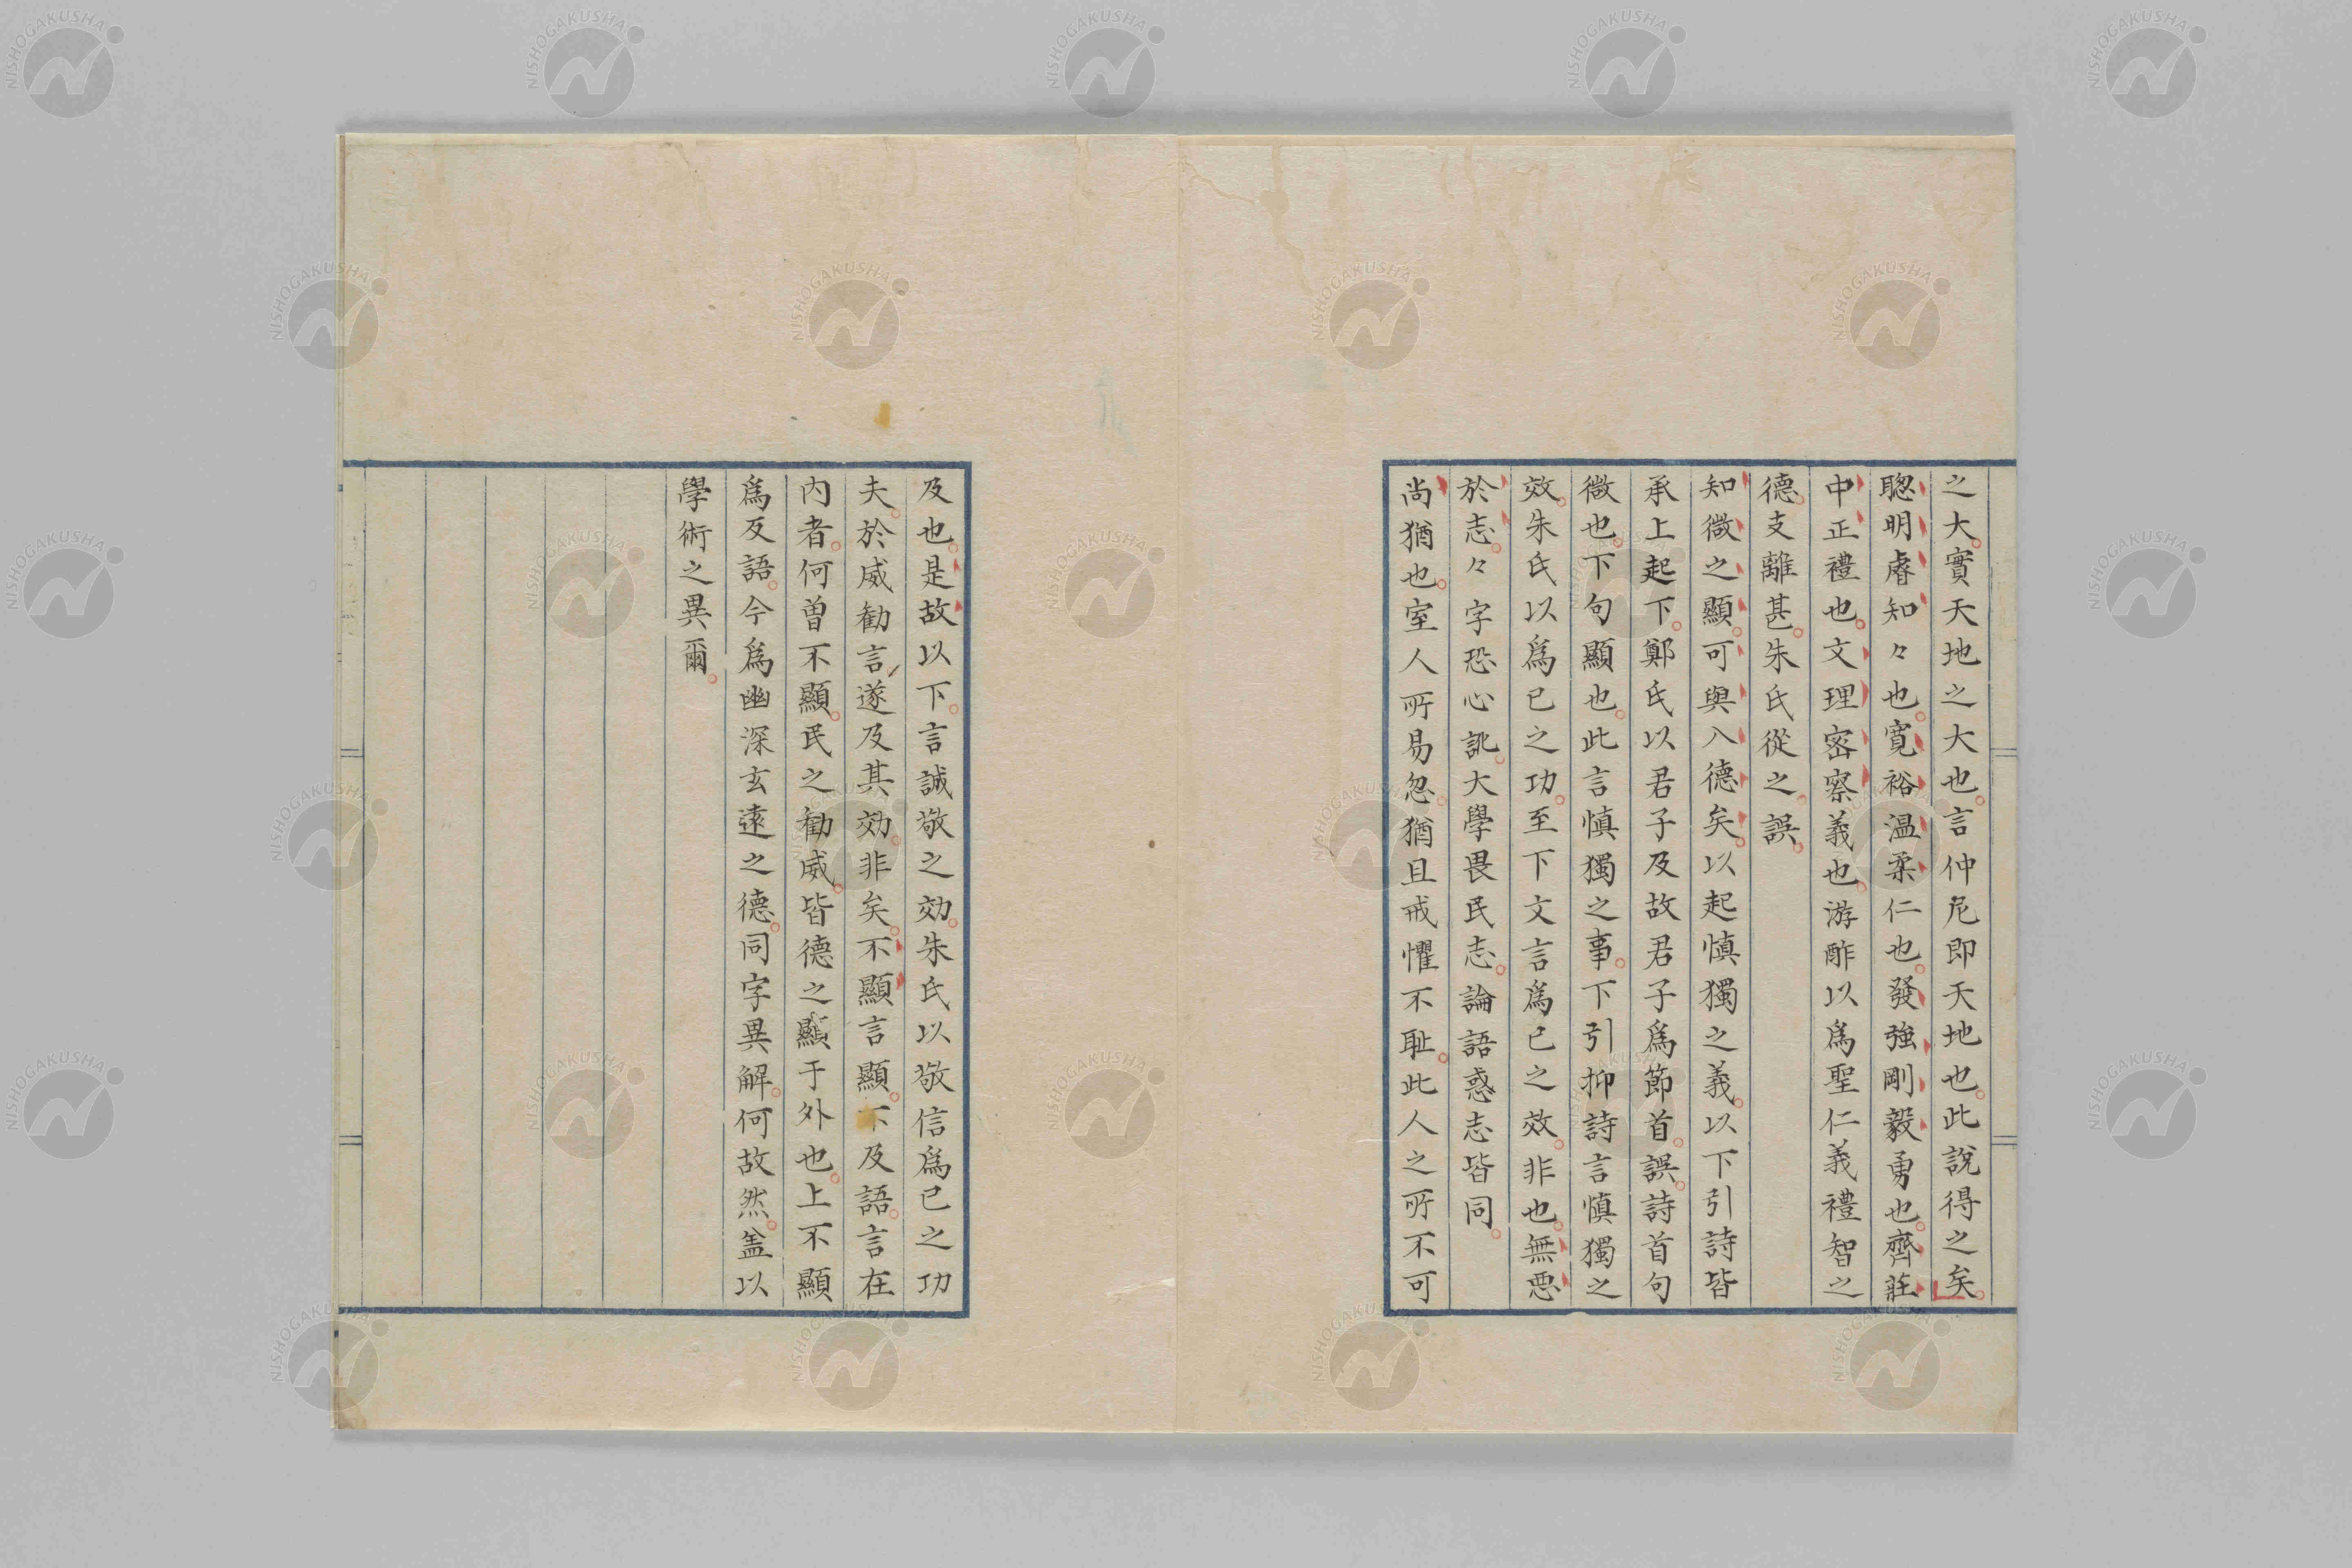 之大實天地之大也言仲尼即天地也此說得之矣
聰明睿知々也寬裕温柔仁也發強剛毅勇也齊莊
中正禮也文理密察義也游酢以爲聖仁義禮智之
德支離甚朱氏從之誤
知微之顯可與入德矣以起慎獨之義以下引詩皆
承上起下鄭氏以君子及故君子爲節首誤詩首句
微也下句顯也此言慎獨之事下引抑詩言慎獨之
效朱氏以爲已之功至下文言爲已之效非也無惡
於志々字恐心訛大學畏民志論語惑志皆同
尚猶也室人所易忽猶且戒懼不耻此人之所不可
及也是故以下言誠敬之効朱氏以敬信爲已之功
夫於威勸言遂及其効非矣不顯言顯不及語言在
内者何曽不顯民之勸威皆德之顯于外也上不顯
爲反語今爲幽深玄遠之德同字異解何故然盖以
學術之異爾
NISHOGAKUSHA